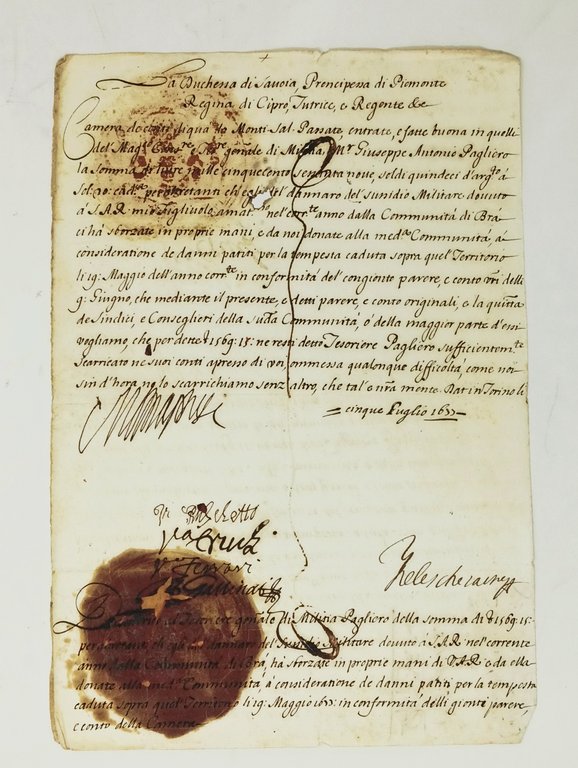 La Duchessa di Savoia, Prencipessa di Piemonte
Regina di Cipro, Tutrice, e Regente &c
Camera de conti di qua da Monti Sal. Passate, entrate, e fatte buona in quelli
del Mag.co Teso.re gen̄ale di Militia, M.r Giuseppe Antonio Pagliero
la somma di lire mille cinquecento sessanta nove, soldi quindeci d'arg.to à
sol. 20: cad.a per altretanti che egli del dannaro del sussidio Militare dovuto
à S.A.R. mio figliuolo amat.mo nel corr.te anno dalla Communità di Bra
ci hà sborzate in proprie mani e da noi donate alla med.ma Communità, à
consideratione de danni patiti per la tempesta caduta sopra quel Territorio
li 19: Maggio dell'anno corr.te in conformità del congionto parere, e conto vr̄i delli
9: Giugno, che mediante il presente, e detti parere, e conto originali, e la quitta
de Sindici, e Conseglieri della sud.a Communità, ò della maggior parte d'essi
vogliamo, che per dette £ 1569: 15: ne resti detto Tesoriere Pagliero sufficientem.te
Scarricato ne suoi conti apresso di voi, ommessa qualonque difficoltà, come noi
sin d'hora ne lo scarrichiamo senz'altro, che tal'è nr̄a mente. Dat in Torino li
cinque Luglio 1677
V.a Ferrari
Tesoriere gen̄ale di Militia Pagliero della somma di £ 1569: 15:
per altretanti che egli del dannaro del Sussidio Militare dovuto à S.A.R. nel corrente
anno dalla Communità di Bra, hà sborzate in proprie mani di V.A.R. e da ella
donate alla med.ma Communità, à consideratione de danni patiti per la tempesta
caduta sopra quel Territorio li 19: Maggio 1677: in conformità delli gionti parere,
e conto della Camera